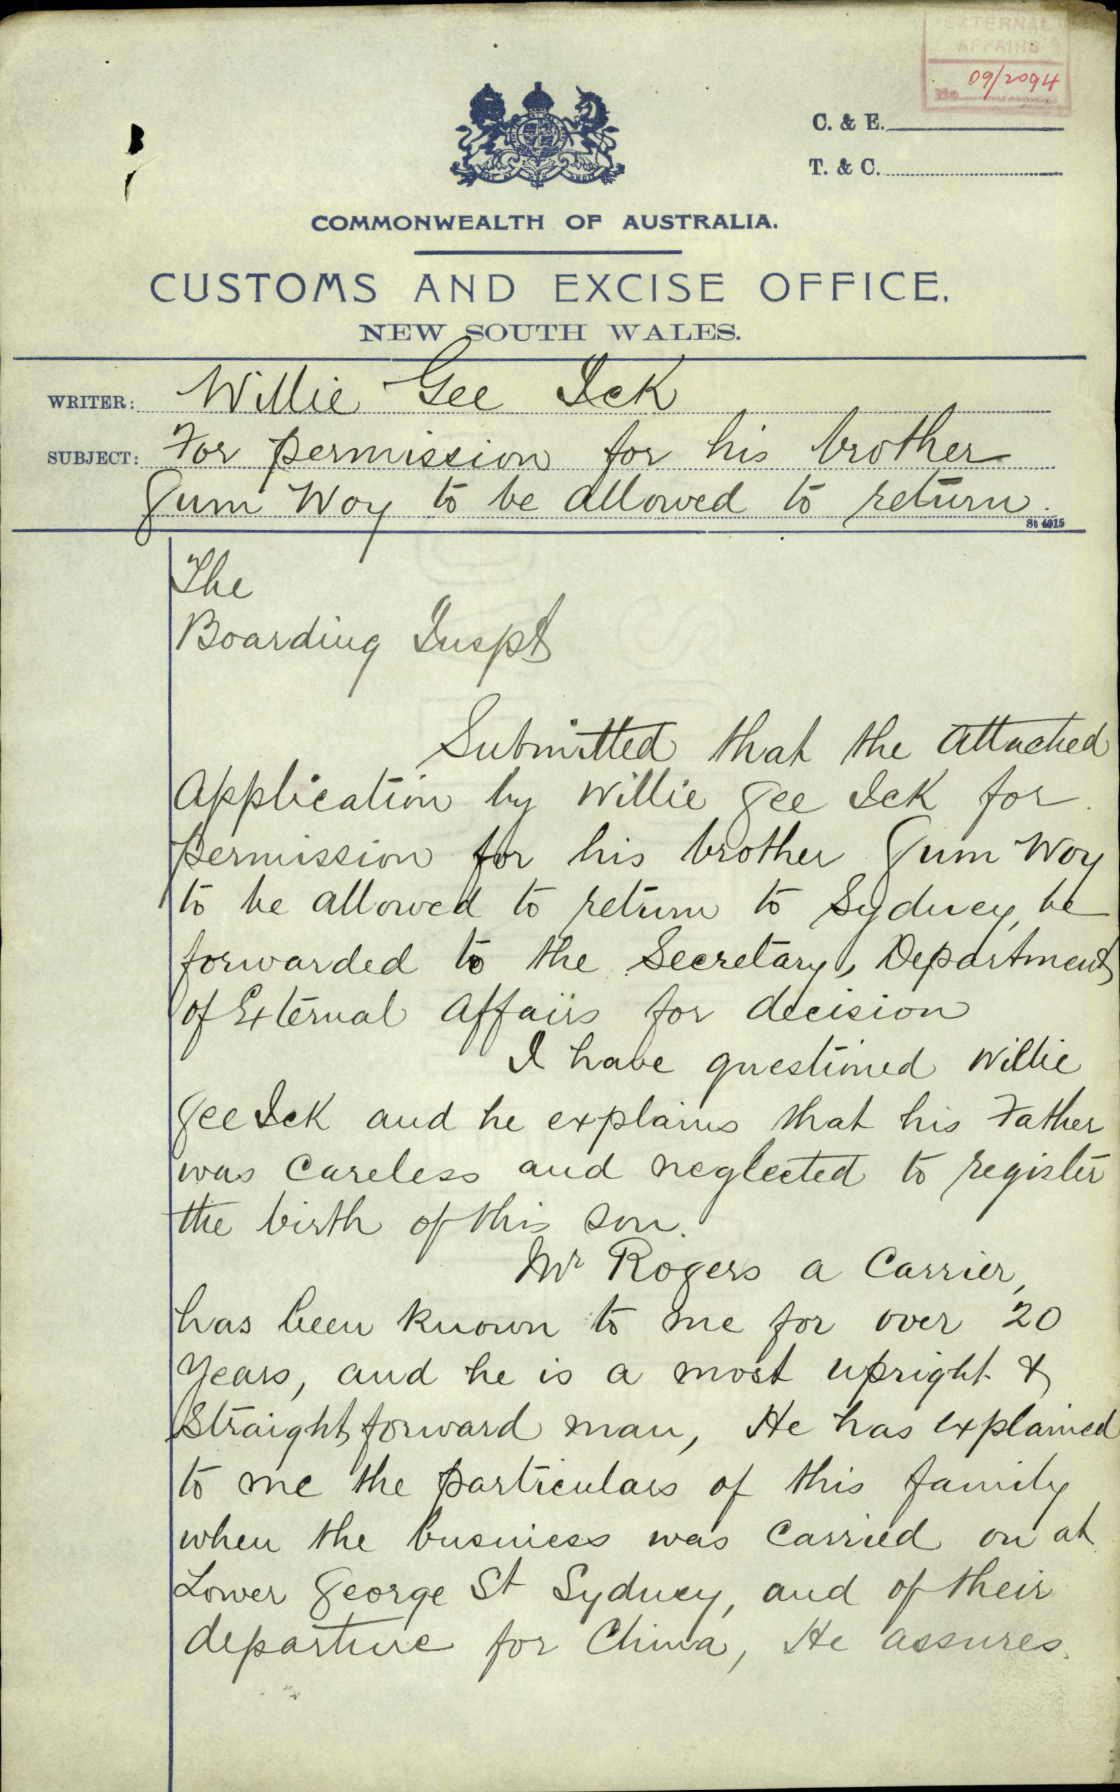 EXTERNAL
AFFAIRS
No 09/2094
C. & E.
T. & C.
COMMONWEALTH OF AUSTRALIA.
CUSTOMS AND EXCISE OFFICE.
NEW SOUTH WALES.
WRITER: Willie Gee Ick
SUBJECT: For permission for his brother
Gum Woy to be allowed to return.
St 4915
The
Boarding Inspt
Submitted that the attached
application by Willie Gee Ick for
permission for his brother Gum Woy
to be allowed to return to Sydney, be
forwarded to the Secretary, Department
of External Affairs for decision
I have questioned Willie
Gee Ick and he explains that his Father
was careless and neglected to register
the birth of this son.
Mr Rogers a Carrier,
has been known to me for over 20
years, and he is a most upright &
straightforward man, He has explained
to me the particulars of this family
when the business was carried on at
Lower George St Sydney, and of their
departure for China, He assures